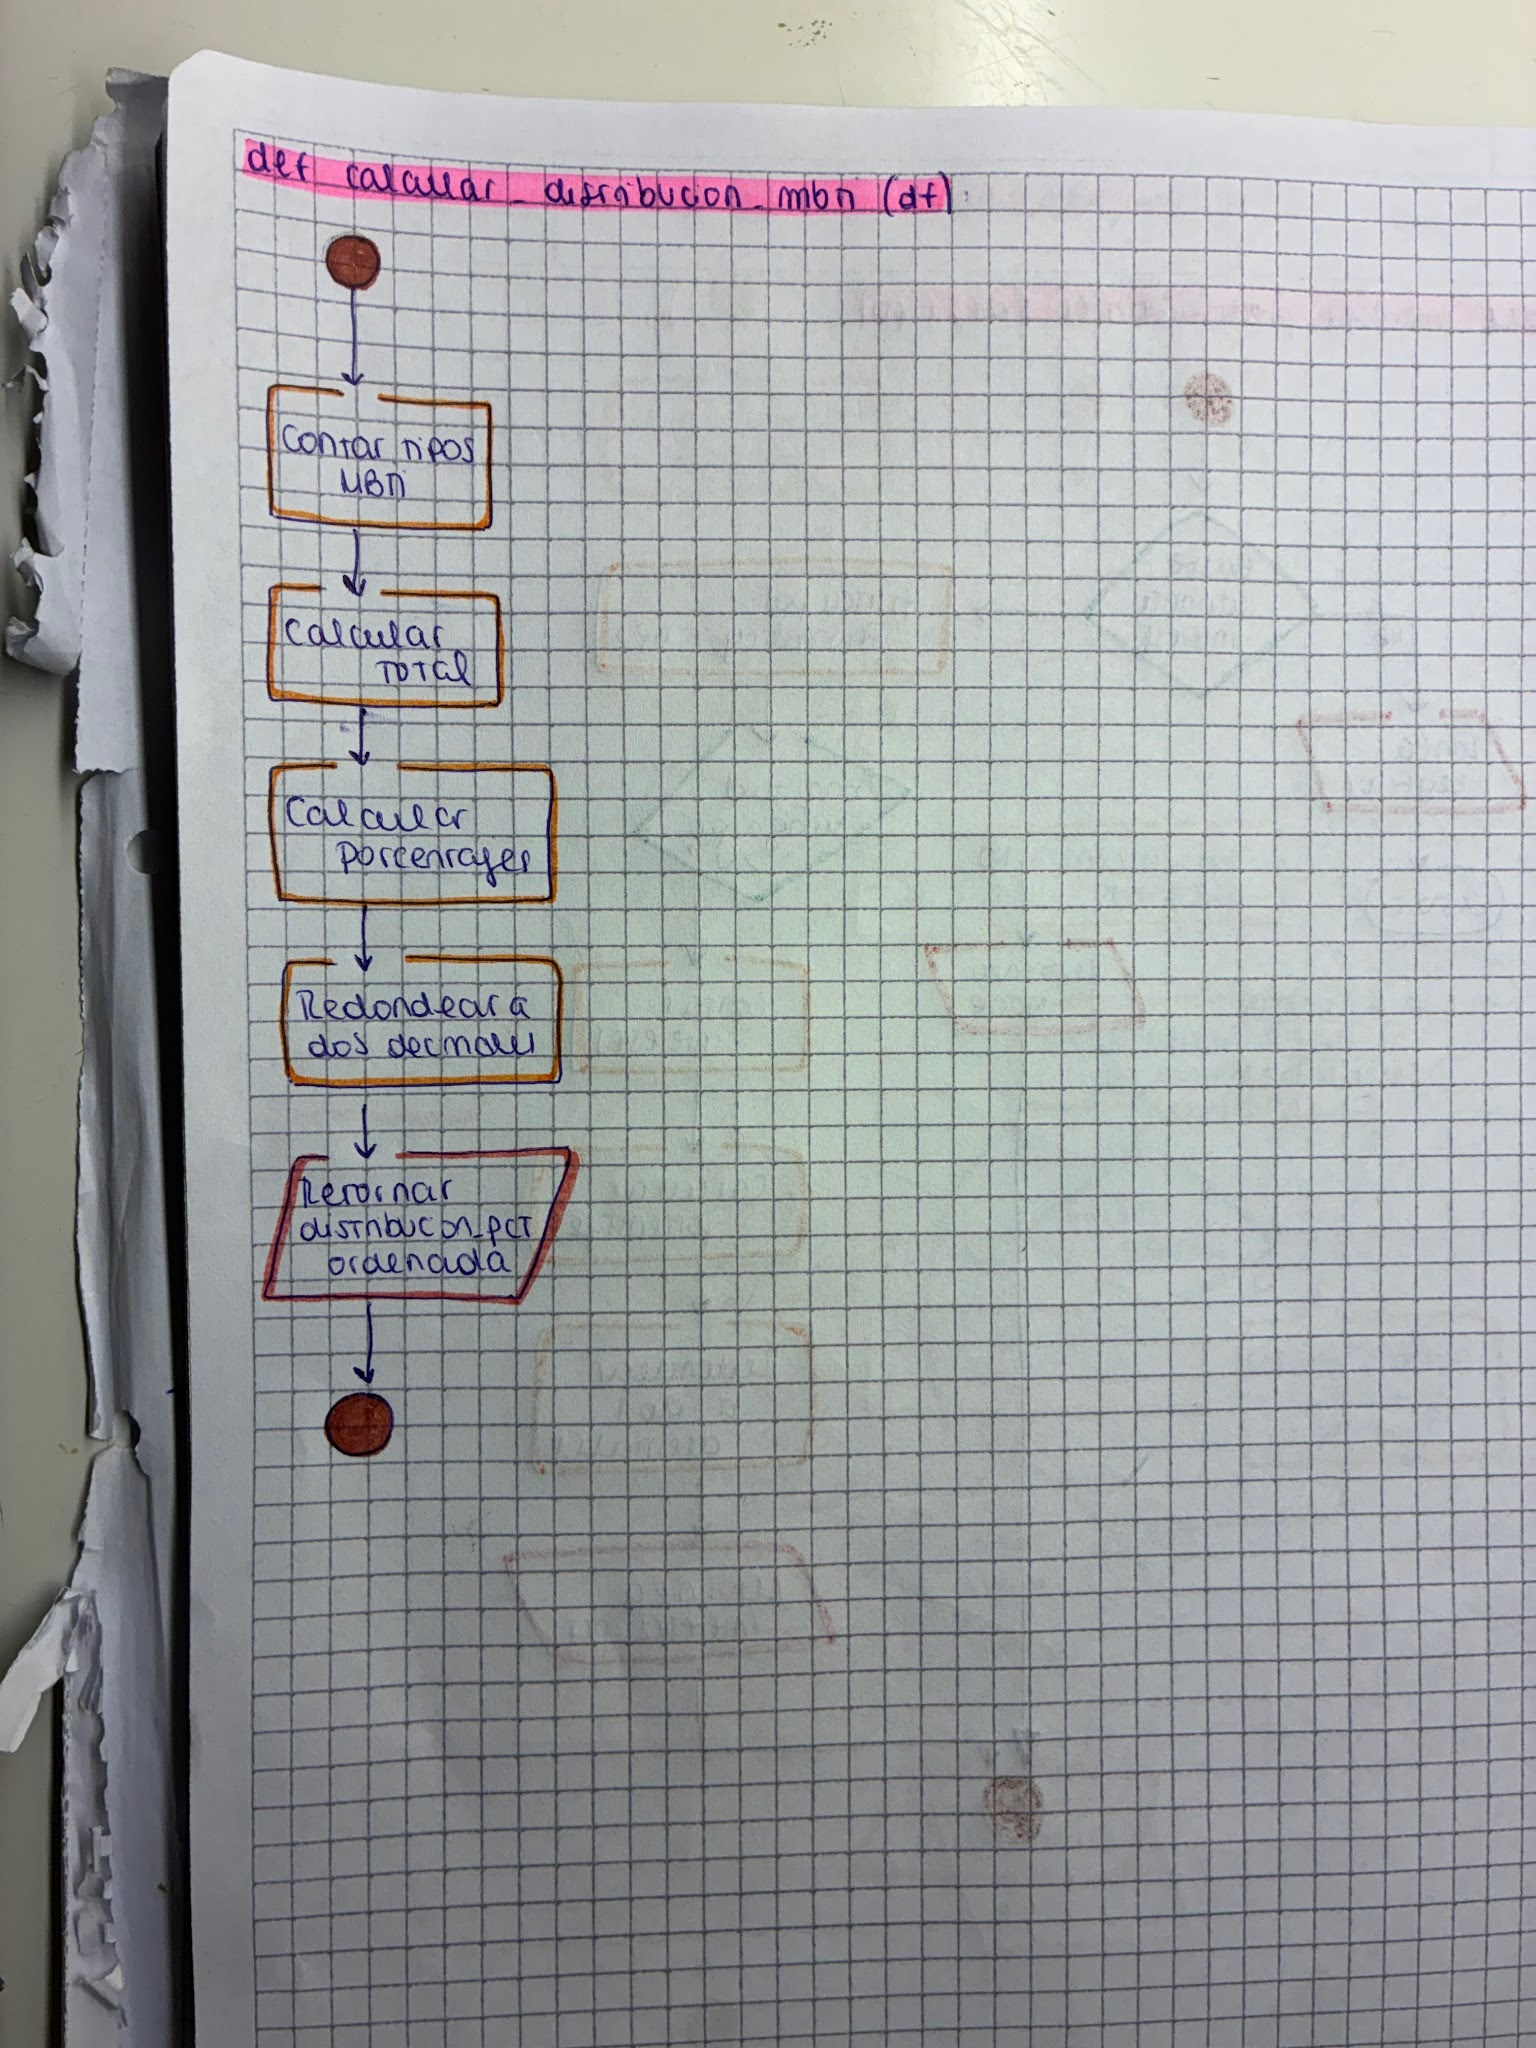 def calcular_distribucion_mbti (df):
Contar tipos
MBTI
Calcular
Total
Calcular
porcentajes
Redondear a
dos decimales
Retornar
distribucion_pct
ordenada